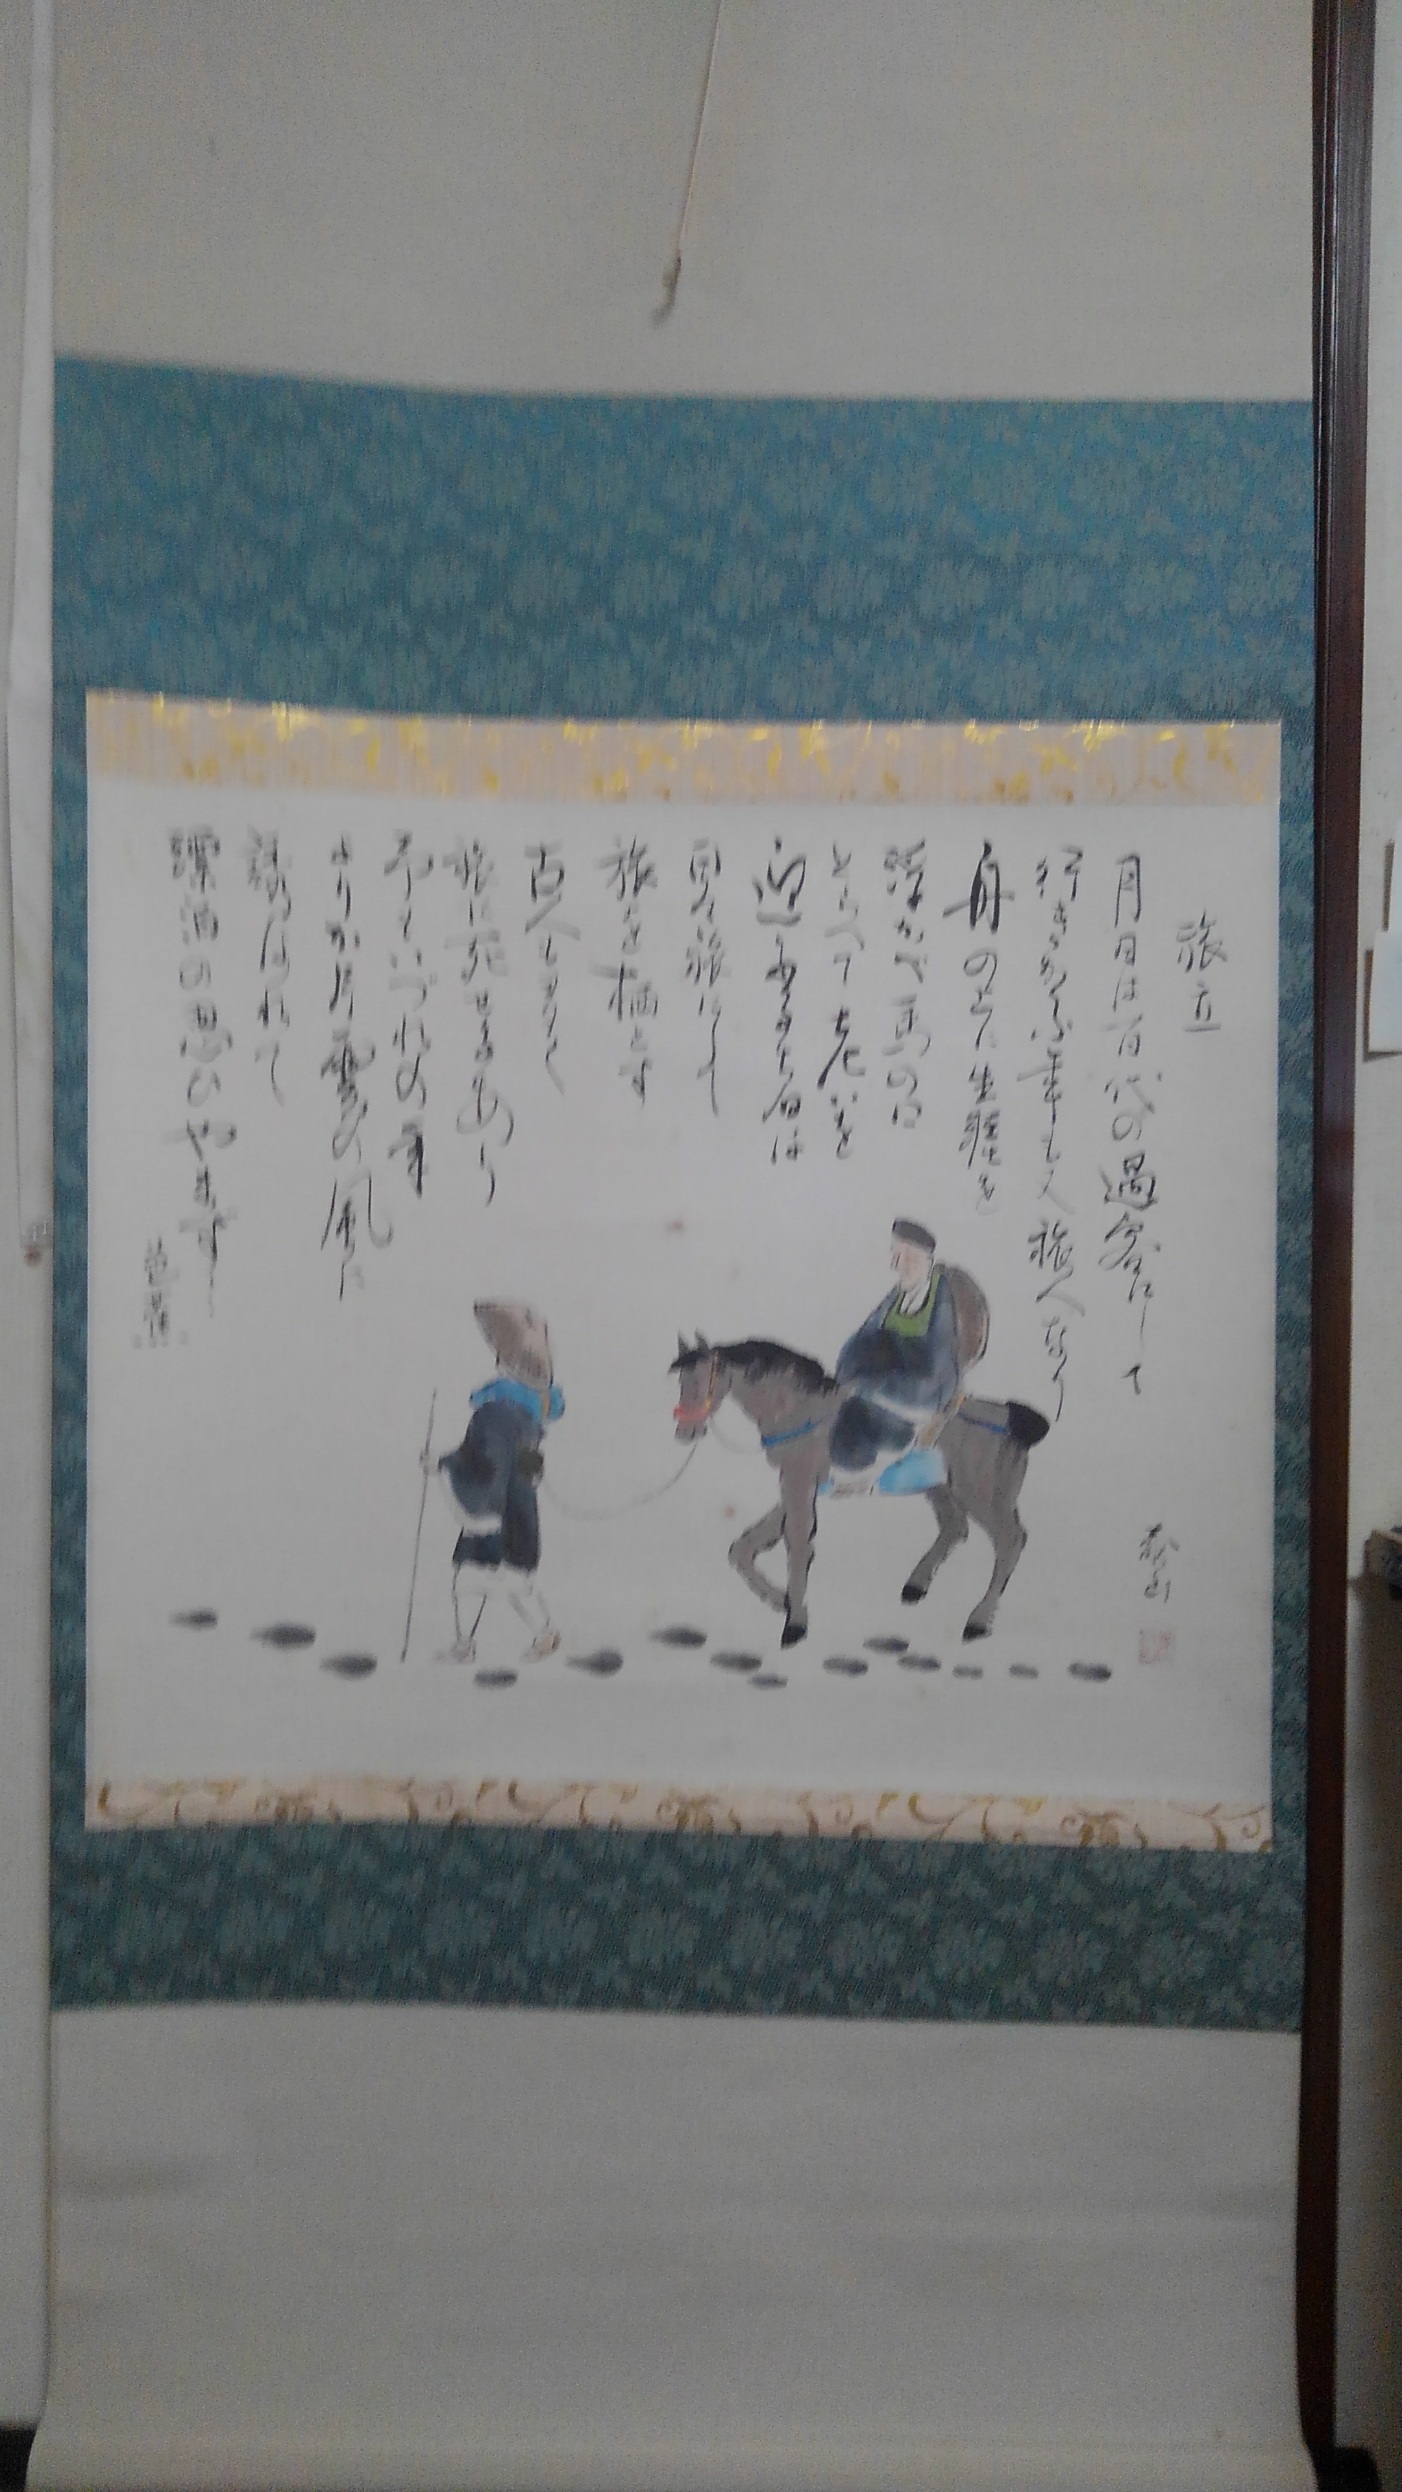 旅立
月日は百代の過客にして
行きかふ年も又旅人なり
舟の上に生涯を
浮かべ馬の口
とらへて老いを
迎ふる者は
日々旅にして
旅を栖とす
古人も多く
旅に死せるあり
予もいづれの年
よりか片雲の風に
誘はれて
漂泊の思ひやまず